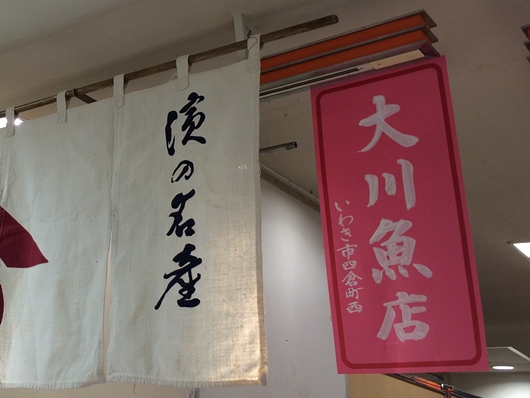 大川魚店
いわき市四倉町西
濱の名産